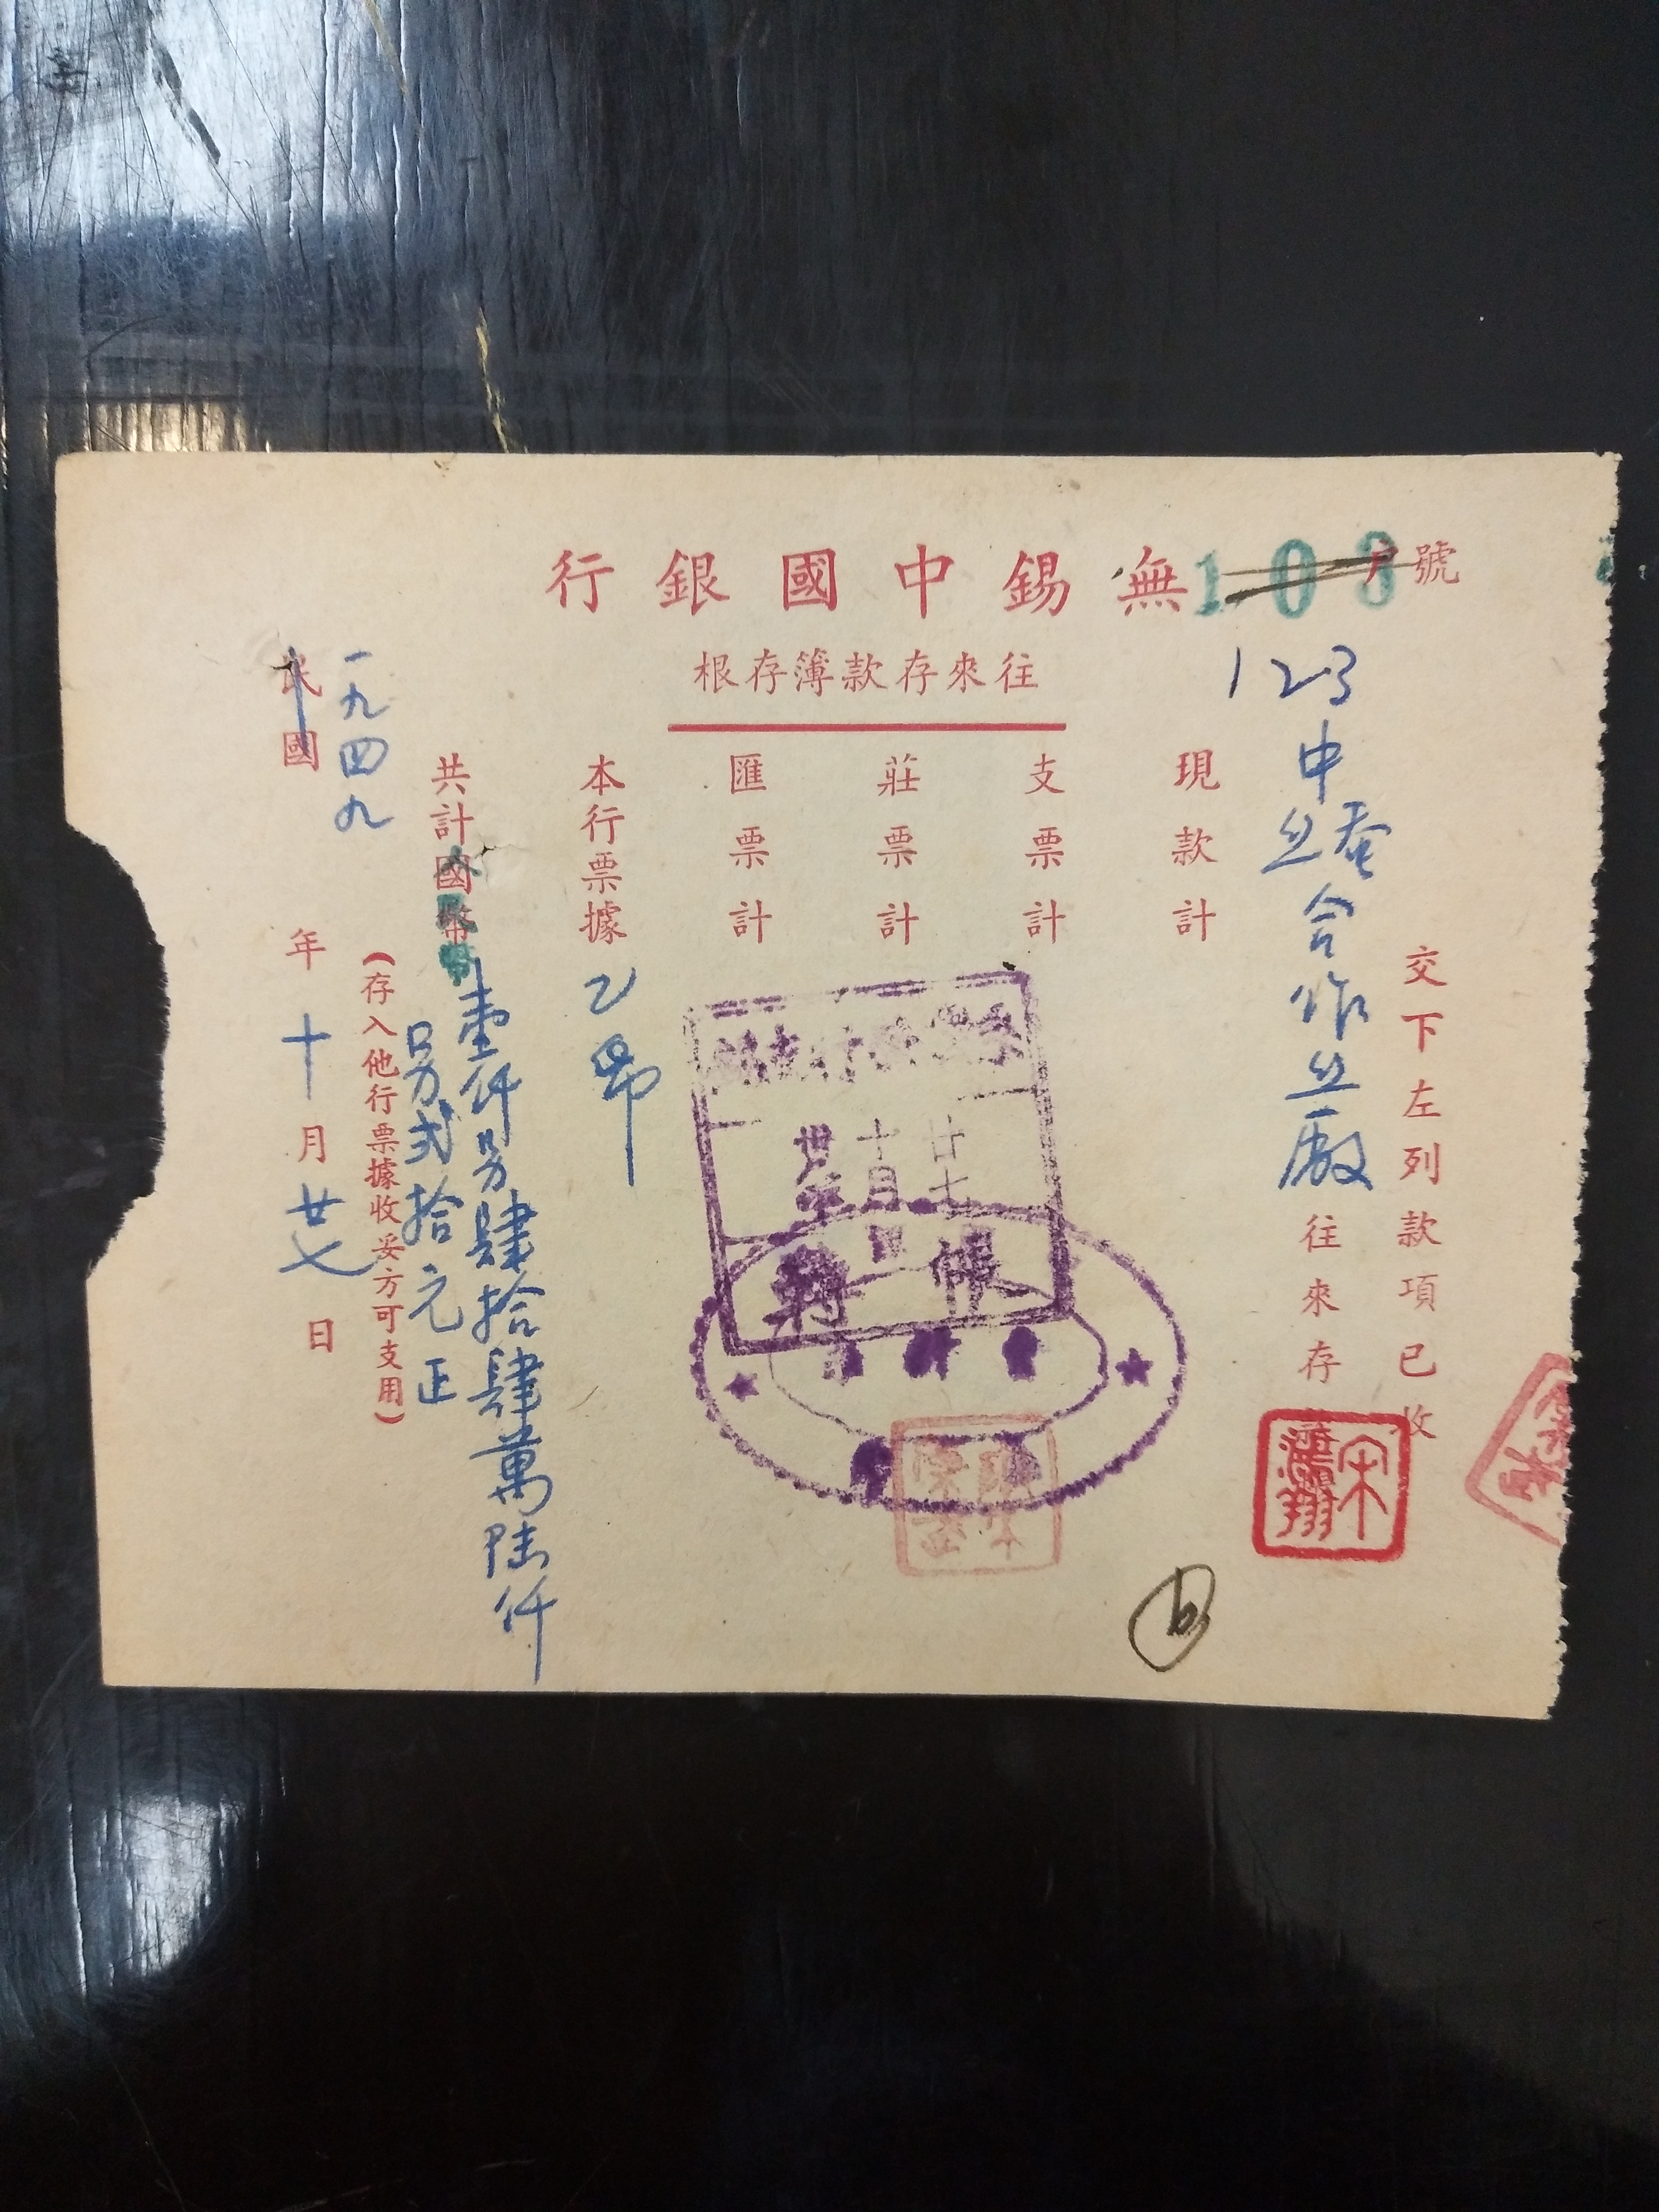 無錫中國銀行
往來存款簿存根
108號
123
中蚕絲合作絲廠往來存
交下左列款項已收
現款計
支票計
莊票計
匯票計
本行票據 乙帋
共計國幣壹仟另肆拾肆萬陸仟
另弍拾元正
(存入他行票據收妥方可支用)
一九四九
民國 年十月廿七日
卅八年十月廿七日
轉帳
宋鴻翔